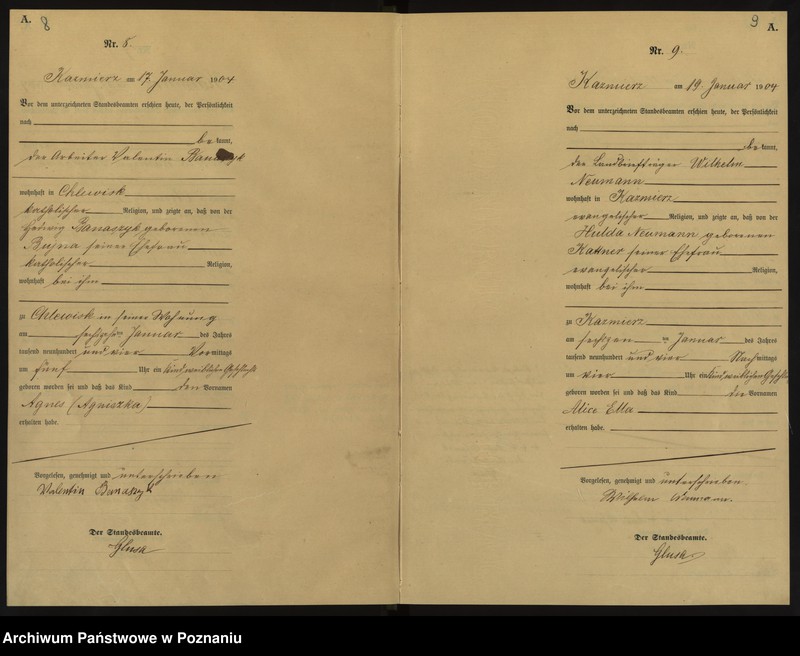 A. 8
Nr. 8.
Kazmierz am 17. Januar 1904
Vor dem unterzeichneten Standesbeamten erschien heute, der Persönlichkeit
nach
be kannt,
der Arbeiter Valentin Banaszyk
wohnhaft in Chlewisk
katholischer Religion, und zeigte an, daß von der
Hedwig Banaszyk geborenen
Bujna seiner Ehefrau
katholischer Religion,
wohnhaft bei ihm
zu Chlewisk in seiner Wohnung
am Januar des Jahres
tausend neunhundert und vier Vormittags
um fünf Uhr ein Kind weiblichen Geschlechts
geboren worden sei und daß das Kind den Vornamen
Agnes (Agnieszka)
erhalten habe.
Vorgelesen, genehmigt und unterschrieben
Valentin Banaszyk
Der Standesbeamte.
Glusk
9 A.
Nr. 9.
Kazmierz am 19. Januar 1904
Vor dem unterzeichneten Standesbeamten erschien heute, der Persönlichkeit
nach
be kannt,
der Landbriefträger Wilhelm
Neumann
wohnhaft in Kazmierz
evangelischer Religion, und zeigte an, daß von der
Hulda Neumann geborenen
Kattner seiner Ehefrau
evangelischer Religion,
wohnhaft bei ihm
zu Kazmierz
am sechzehn ten Januar des Jahres
tausend neunhundert und vier Nachmittags
um vier Uhr ein Kind weiblichen Geschlechts
geboren worden sei und daß das Kind die Vornamen
Alice Ella
erhalten habe.
Vorgelesen, genehmigt und unterschrieben
Wilhelm Neumann.
Der Standesbeamte.
Glusk
Archiwum Państwowe w Poznaniu